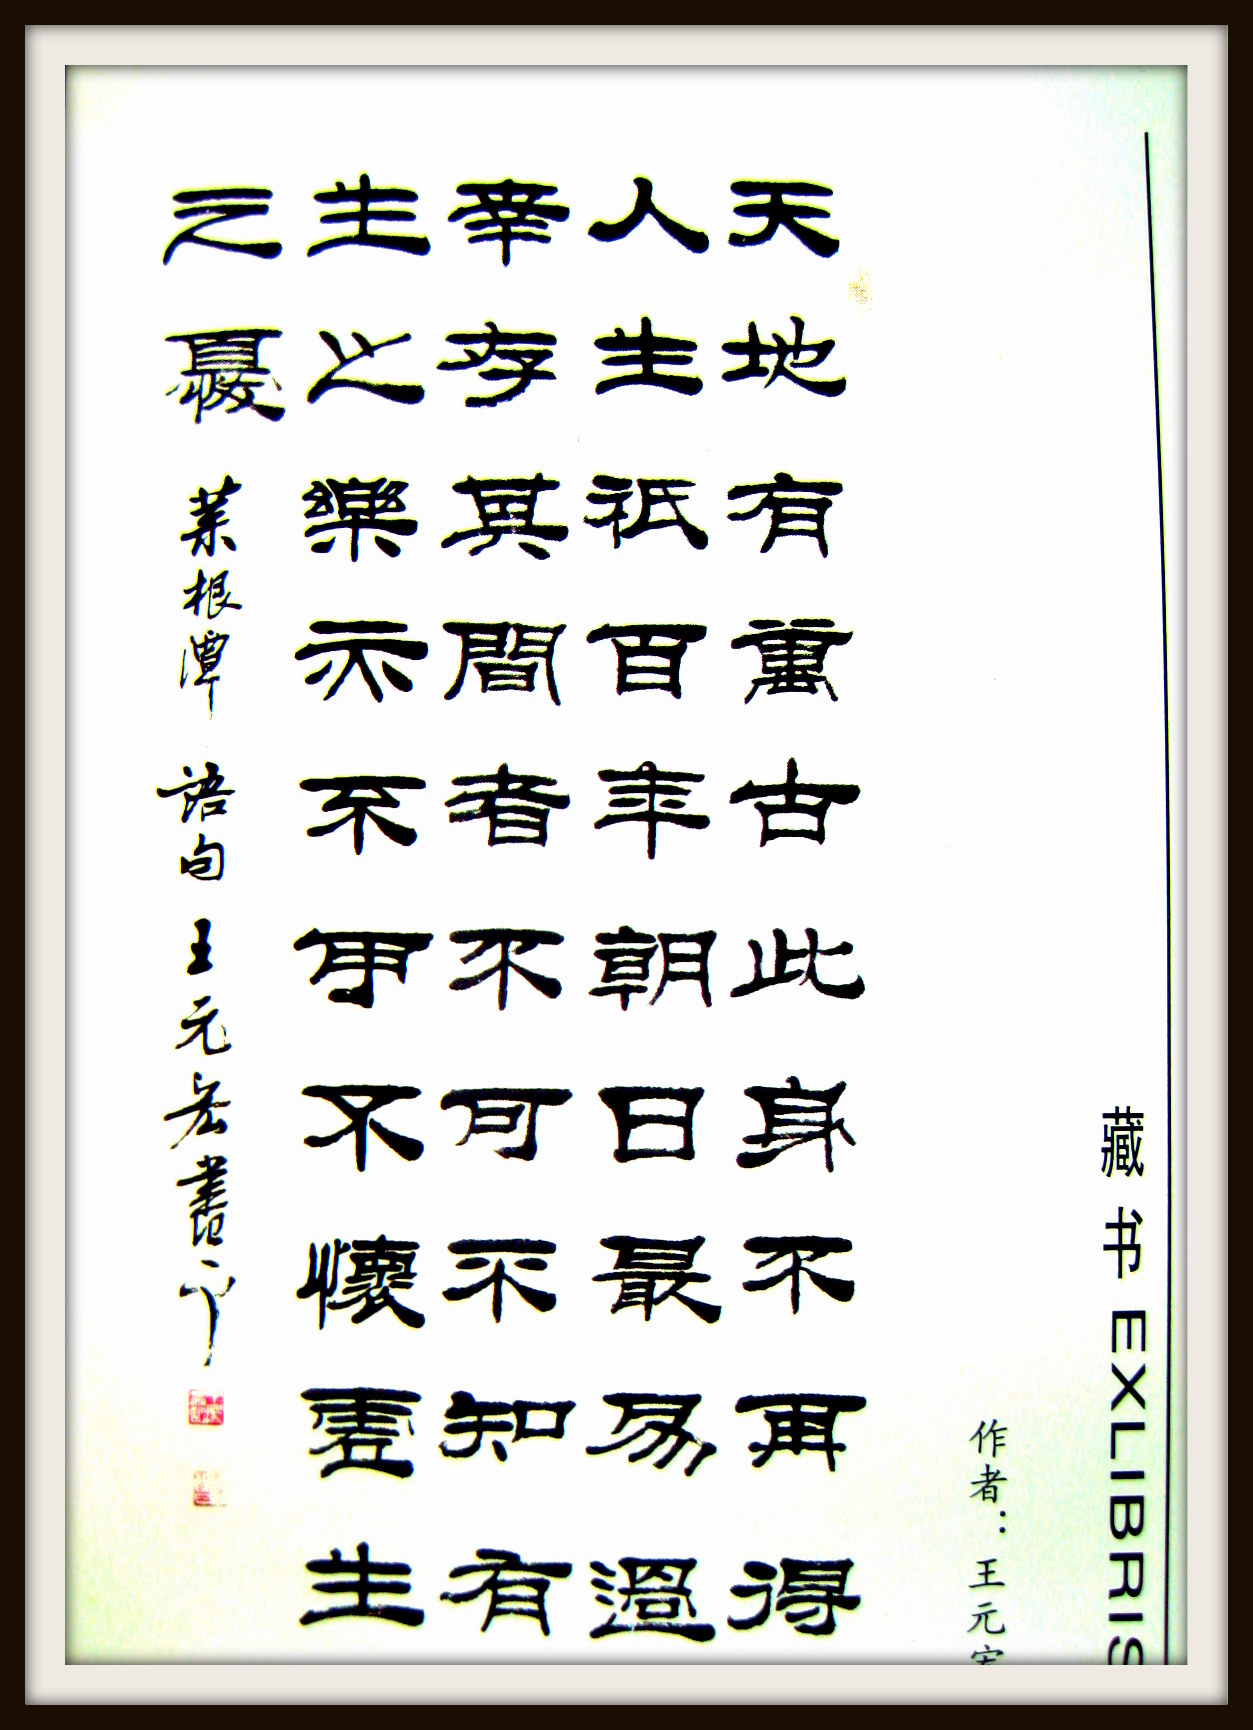 藏书 EXLIBRIS
作者：王元
天地有萬古此身不再得
人生祇百年朝日最易過
幸存其間者不可不知有
生之樂亦不可不懷虛生
之憂 菜根潭 語句 王元宏書